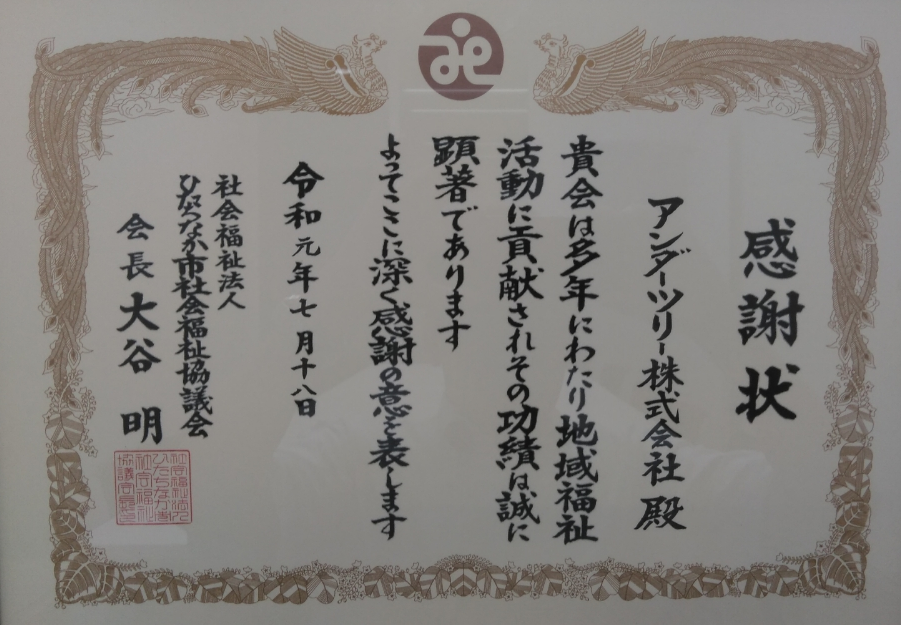 感謝状
アンダーツリー株式会社 殿
貴会は多年にわたり地域福祉
活動に貢献されその功績は誠に
顕著であります
よってここに深く感謝の意を表します
令和元年七月十八日
社会福祉法人
ひたちなか市社会福祉協議会
会長 大谷 明